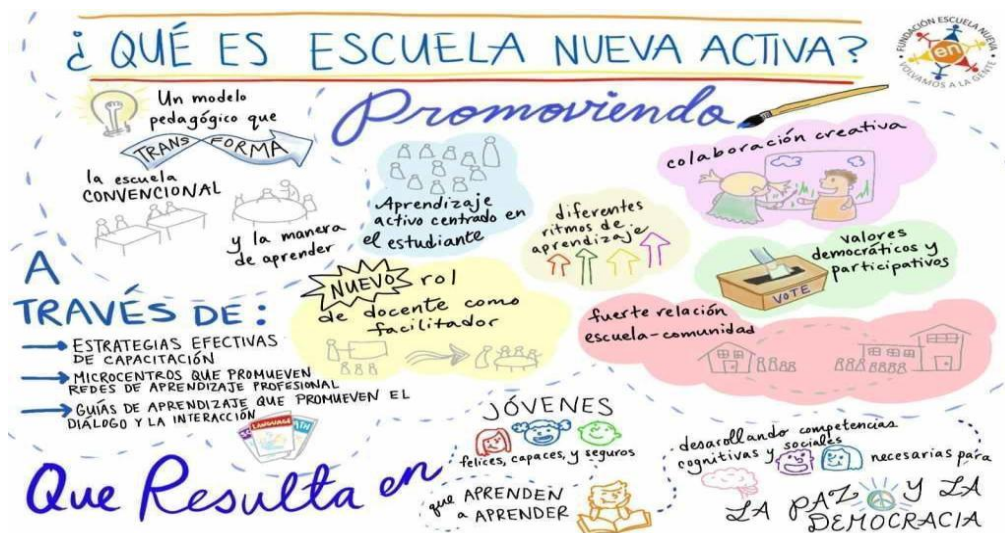 ¿QUÉ ES ESCUELA NUEVA ACTIVA?
FUNDACIÓN ESCUELA NUEVA
en
VOLVAMOS A LA GENTE
Un modelo
pedagógico que
TRANSFORMA
la escuela
CONVENCIONAL
y la manera
de aprender
Promoviendo
Aprendizaje
activo centrado en
el estudiante
diferentes
ritmos de
aprendizaje
colaboración creativa
valores
democráticos y
participativos
VOTE
NUEVO rol
de docente como
facilitador
fuerte relación
escuela-comunidad
A
TRAVÉS DE:
ESTRATEGIAS EFECTIVAS
DE CAPACITACIÓN
MICROCENTROS QUE PROMUEVEN
REDES DE APRENDIZAJE PROFESIONAL
GUÍAS DE APRENDIZAJE QUE PROMUEVEN EL
DIÁLOGO Y LA INTERACCIÓN
LANGUAGE
Que Resulta en
JÓVENES
felices, capaces, y seguros
que APRENDEN
a APRENDER
desarollando competencias
cognitivas y sociales
necesarias para
LA PAZ Y LA
DEMOCRACIA